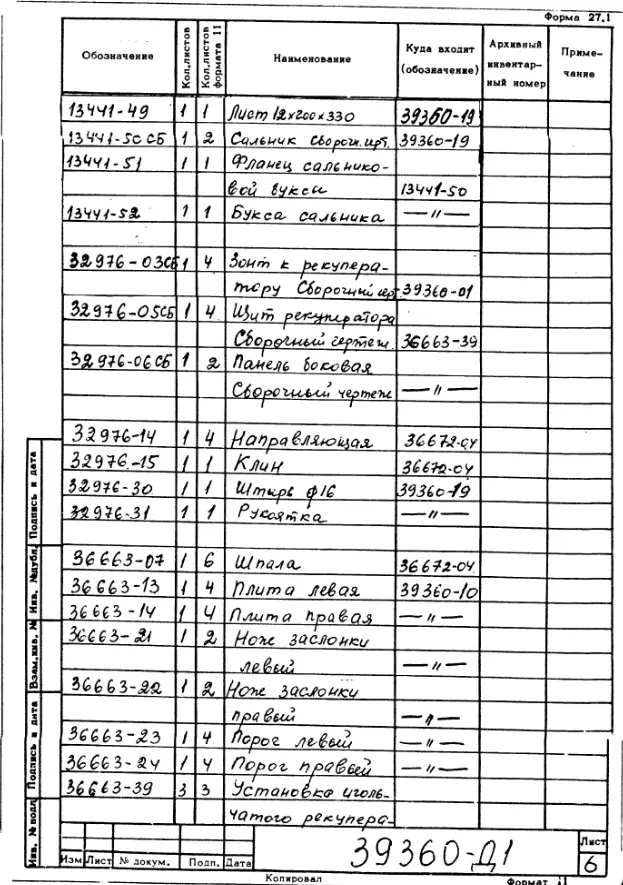 Форма 27.1
Обозначение Кол.листов Кол.листов формата 11 Наименование Куда входит (обозначение) Архивный инвентар- ный номер Приме- чание
13441-49 1 1 Лист 12х200х330 39360-19
13441-50 СБ 1 2 Сальник Сборочн. черт. 39360-19
13441-51 1 1 Фланец сальнико-
вой буксы 13441-50
13441-52 1 1 Букса сальника —〃—
32976-03СБ 1 4 Зонт к рекупера-
тору Сборочный черт 39360-01
32976-05СБ 1 4 Щит рекуператора
Сборочный чертеж. 36663-39
32976-06СБ 1 2 Панель боковая
Сборочный чертеж —〃—
32976-14 1 4 Направляющая 36672-04
32976-15 1 1 Клин 36672-04
32976-30 1 1 Штырь ф16 39360-19
32976-31 1 1 Рукоятка —〃—
36663-07 1 6 Шпала 36672-04
36663-13 1 4 Плита левая 39360-10
36663-14 1 4 Плита правая —〃—
36663-21 1 2 Нож заслонки
левый —〃—
36663-22 1 2 Нож заслонки
правый —〃—
36663-23 1 4 Порог левый —〃—
36663-24 1 4 Порог правый —〃—
36663-39 3 3 Установка иголь-
чатого рекупера-
Инв. № подл. Подпись и дата Взам.инв. № Инв. №дубл. Подпись и дата
Изм Лист № докум. Подп. Дата
39360-Д1
Лист
6
Копировал
Формат 11